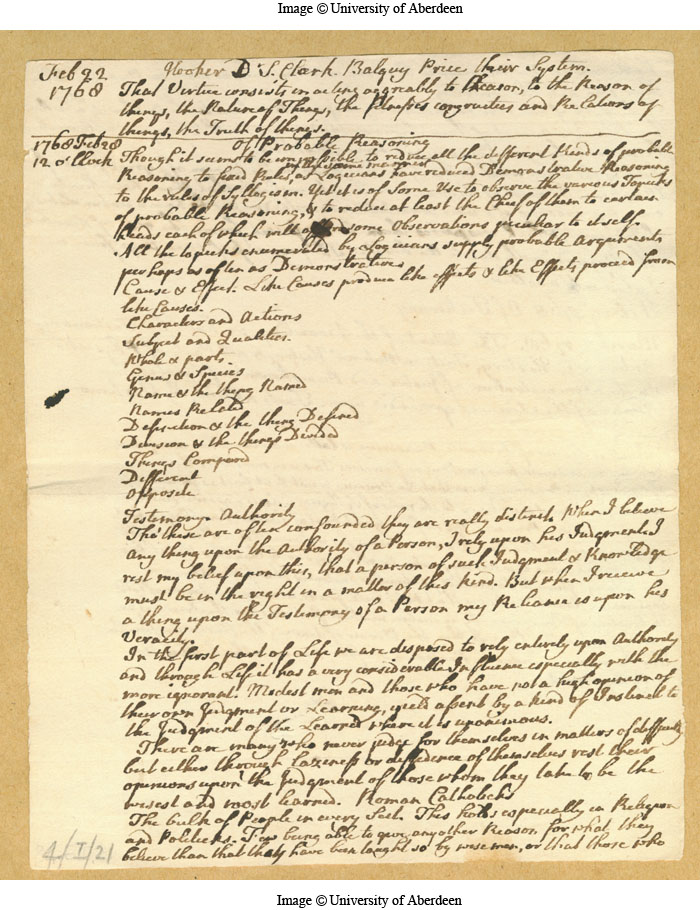 Image © University of Aberdeen
Feb 22 Hooker Dr S. Clark. Balguy Price their System.
1768 That Virtue consists in acting agreably to Reason, to the Reason of
things, the Nature of Things, the fitnesses congruities and Relations of
things, the Truth of things.
1768 Feb 28 Of Probable Reasoning
12 o'Clock Though it seems to be impossible to reduce all the different kinds of probable
Reasoning to fixed Rules, as Logicians have reduced Demonstrative Reasoning
to the rules of Syllogism. Yet it is of Some Use to observe the various Topicks
of probable Reasoning, & to reduce at least the Chief of them to certain
heads each of which will afford some Observations peculiar to it self.
All the topicks enumerated by Logicians supply probable Arguments
perhaps as often as Demonstratives
Cause & Effect. Like Causes produce like effects & like Effects proceed from
like Causes.
Characters and Actions
Subject and Qualities.
Whole & parts.
Genus & Species
Name & the thing Named
Names Related
Definition & the thing Defined
Division & the things Divided
Things Compared
Different
Opposite
Testimony. Authority
Tho' these are often confounded they are really distinct. When I believe
any thing upon the Authority of a Person, I rely upon his Judgment, I
rest my belief upon this, that a person of such Judgment & Knowledge
must be in the right in a matter of this kind. But when I receive
a thing upon the Testimony of a Person my Reliance is upon his
Veracity.
In the first part of Life we are disposed to rely entirely upon Authority
and through Life it has a very considerable Influence especially with the
more ignorant. Modest men and those who have not a high opinion of
their own Judgment or Learning, yield assent by a kind of Instinct to
the Judgment of the Learned where it is unanimous.
There are many who never judge for themselves in matters of difficulty
but either through Laziness or diffidence of themselves rest their
opinions upon the Judgment of those whom they take to be the
wisest and most learned. Roman Catholicks
The bulk of People in every Sect. This holds especially in Religion
and Politicks. Few being able to give any other Reason for what they
believe than that they have been taught so by wise men, or that those who
4/I/21
Image © University of Aberdeen